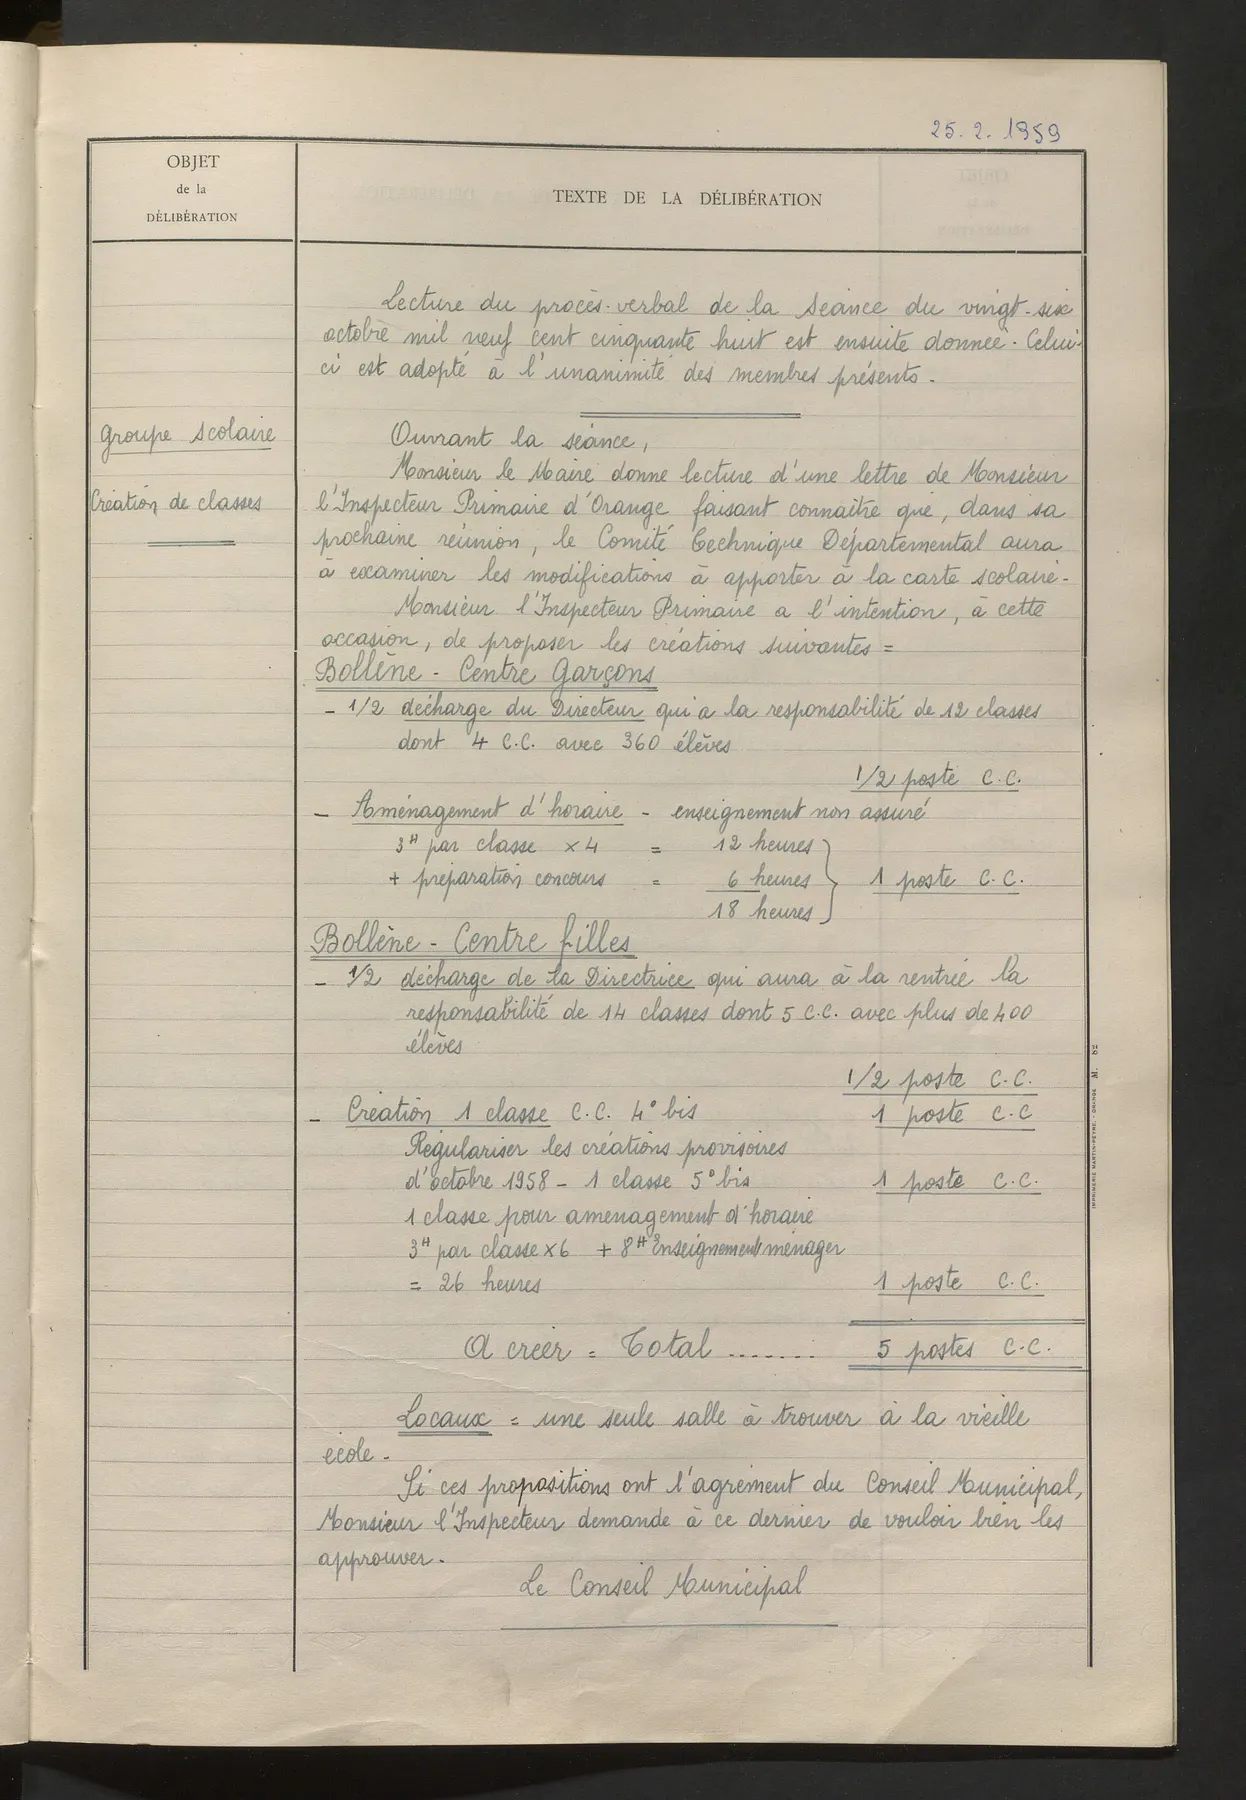 25.2.1959
OBJET
de la
DÉLIBÉRATION
TEXTE DE LA DÉLIBÉRATION
Lecture du procès-verbal de la séance du vingt-six
octobre mil neuf cent cinquante huit est ensuite donnée. Celui-
ci est adopté à l'unanimité des membres présents.
Groupe Scolaire
Création de classes
Ouvrant la séance,
Monsieur le Maire donne lecture d'une lettre de Monsieur
l'Inspecteur Primaire d'Orange faisant connaître que, dans sa
prochaine réunion, le Comité Technique Départemental aura
à examiner les modifications à apporter à la carte scolaire.
Monsieur l'Inspecteur Primaire a l'intention, à cette
occasion, de proposer les créations suivantes =
Bollène - Centre Garçons
- 1/2 décharge du Directeur qui a la responsabilité de 12 classes
dont 4 C.C. avec 360 élèves
1/2 poste C.C.
- Aménagement d'horaire - enseignement non assuré
3H par classe x 4 = 12 heures
+ préparation concours = 6 heures } 1 poste C.C.
18 heures
Bollène - Centre filles
- 1/2 décharge de la Directrice qui aura à la rentrée la
responsabilité de 14 classes dont 5 C.C. avec plus de 400
élèves
1/2 poste C.C.
- Création 1 classe C.C. 4° bis 1 poste C.C
Régulariser les créations provisoires
d'octobre 1958 - 1 classe 5° bis 1 poste C.C.
1 classe pour aménagement d'horaire
3H par classe x 6 + 8H Enseignement ménager
= 26 heures 1 poste C.C.
A créer = Total ....... 5 postes C.C.
Locaux = une seule salle à trouver à la vieille
école.
Si ces propositions ont l'agrément du Conseil Municipal,
Monsieur l'Inspecteur demande à ce dernier de vouloir bien les
approuver.
Le Conseil Municipal
IMPRIMERIE MARTIN-PEYRE. - ORANGE M. 82